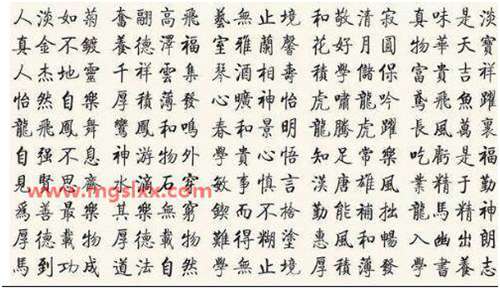 人淡如菊 奮翮高飛 藝無止境 和敬清寂 真味是淡
真金不鍍 養德澤福 室雅蘭馨 花好月圓 物華天寶
人杰地靈 千祥雲集 琴相壽 積學儲 富貴吉祥
怡然自樂 厚積薄發 曠神怡 虎嘯龍吟 鳶飛魚躍
龍飛鳳舞 鸞鳳和鳴 春和景明 龍騰虎躍 長風萬裏
自强不息 神游物外 學貴心悟 知足常樂 吃虧是福
見賢思齊 水滴石穿 敏事慎言 漢唐雄風 業精於勤
www.mgslxx.com
爲善最樂 其樂無窮 鍥而不捨 勤能補拙 龍馬精神
厚德載物 厚德載物 難得糊塗 惠風和暢 入幽出朗
馬到功成 道法自然 學無止境 厚積薄發 學書養志